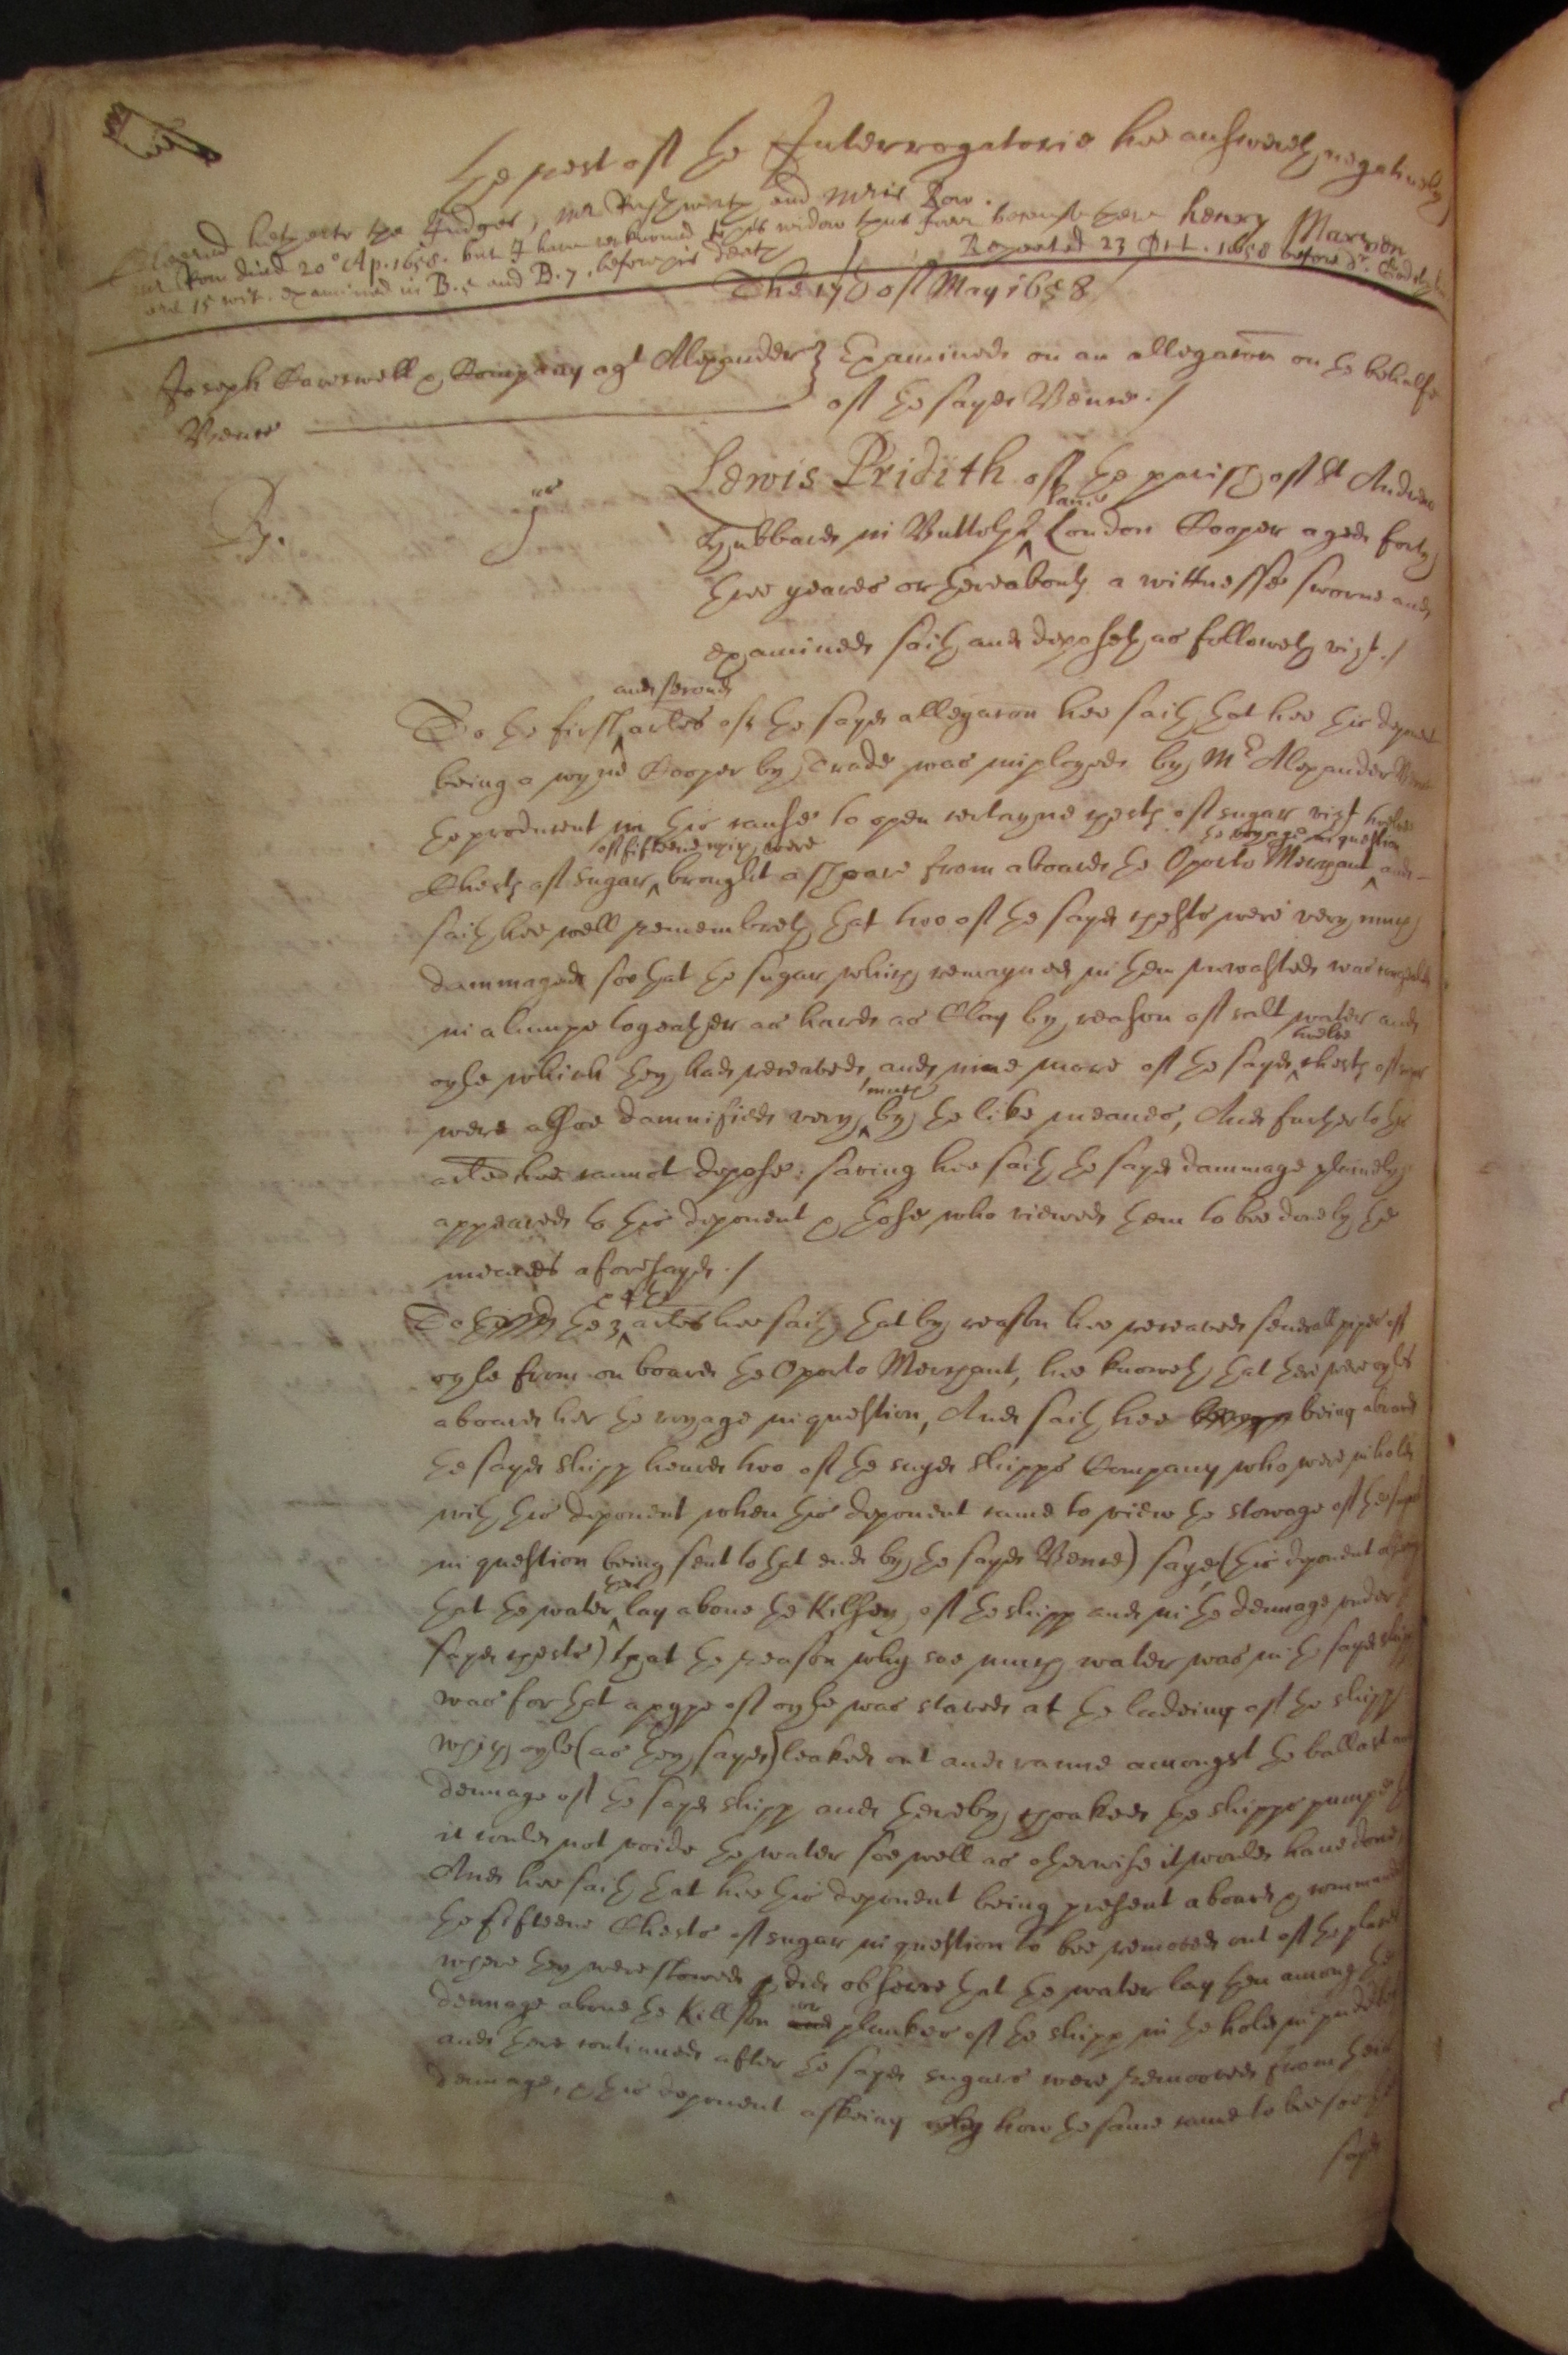 The rest of the Interrogatorie hee answereth negatively
Cleered hitherto the Judges, mr Rushworth and Mris Row.
mr Row died 20o Ap. 1658. but I have reckoned to his widow thus farr because there
are 15 wit. examined in B.5 and B.7. before his death
henry Maxwen
Repeated 23 Oct. 1658 before dr. Godolphin
The 17th of May 1658
Joseph Kareswell & Company agt Alexander } Examined on an allegacon on the behalfe
Vence of the sayd Vence./
By. jus Lewis Pridith of the parish of St Andrew
Hubbard in Buttolph lane London Cooper aged forty
three yeares or thereabouts a wittnesse sworne and
examined saith and deposeth as followeth vizt./
and second
To the first artles of the sayd allegacon hee saith that hee this deponent
being a wyne Cooper by trade was imployed by Mr Alexander Vence
the producent in this cause to open certayne chests of sugar vizt twelve
of fifteene which were the voyage in question
Chests of sugar brought ashoare from aboard the Oporto Merchant and
saith hee well remembreth that two of the sayd chests were very much
dammaged soe that the sugar which remayned in them unwasted was
in a lumpe together as hard as Clay by reason of salt water and
twelve
oyle which they had receaved, and nine more of the sayd chests of sugar
much
were allsoe damnified very by the like meanes, And further to this
artle hee cannot depose. saving hee saith the sayd dammage plainely
appeared to this deponent & those who viewed them to bee done by the
meanes aforesayd./
& 4th
To the 3 artles hee saith that by reason hee receaved severall pipes of
oyle from on board the Oporto Merchant, hee knoweth that there were oyles
aboard her the voyage in question, And saith hee being aboard
the sayd shipp heard two of the sayd shipps Company who were in hold
with this deponent when this deponent came to view the stowage of the sugars
in question being sent to that end by the sayd Vence) saye (this deponent
that the water then lay above the Kilsey of the shipp and in the dennage under the
sayd chests) that the reason why soe much water was in the sayd shipp
was for that a pype of oyle was staved at the ladeing of the shipp
which oyle (as they sayd) leaked out and ranne amongst the ballast and
dennage of the sayd shipp and thereby choaked the shipps pumpe that
it could not voide the water soe well as otherwise it would have done,
And hee saith that hee this deponent being present aboard &
the fifteene Chests of sugar in question to bee removed out of the places
where they were stowed did observe that the water lay then among the
dennage above the Killson and or plankes of the shipp in the hold in puddles
and there continued after the sayd sugars were remooved from their
dennage, & this deponent asking why how the same came to bee soe they
sayd